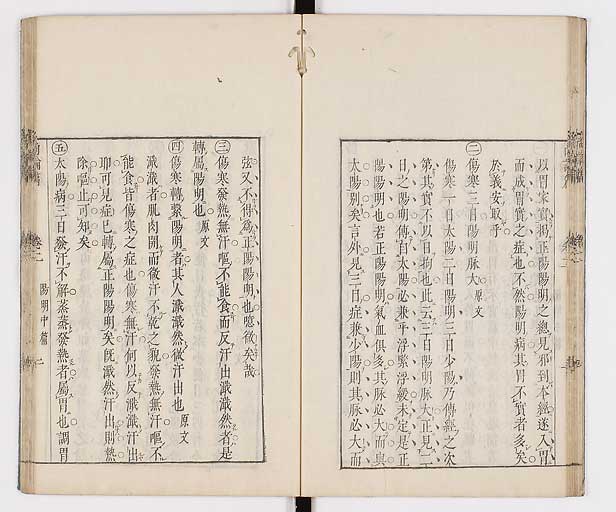 以胃家實揭正陽陽明之總見邪到本經遂入胃
而成胃實之症也不然陽明病其胃不實者多矣
於義安取乎
㊁傷寒三日陽明脉大 原文
傷寒一日太陽二日陽明三日少陽乃傳經之次
第其實不以日拘也此云三日陽明脉大正見二
日之陽明傳自太陽必兼乎浮緊浮緩未定是正
陽陽明也若正陽陽明氣血俱多其脉必大而與
太陽別矣言外見三日症兼少陽則其脉必大而
弦又不得為正陽陽明也噫微矣哉
㊂傷寒發熱無汗嘔不能食而反汗出濈濈然者是
轉屬陽明也 原文
㊃傷寒轉繫陽明者其人濈濈然微汗出也 原文
濈濈者肌肉開而微汗不乾之貌發熱無汗嘔不
能食皆傷寒之症也傷寒無汗何以反濈濈汗出
耶可見症已轉屬正陽陽明矣既濈然汗出則熱
除嘔止可知矣
㊄太陽病三日發汗不解蒸蒸發熱者屬胃也調胃
陽明中篇 二